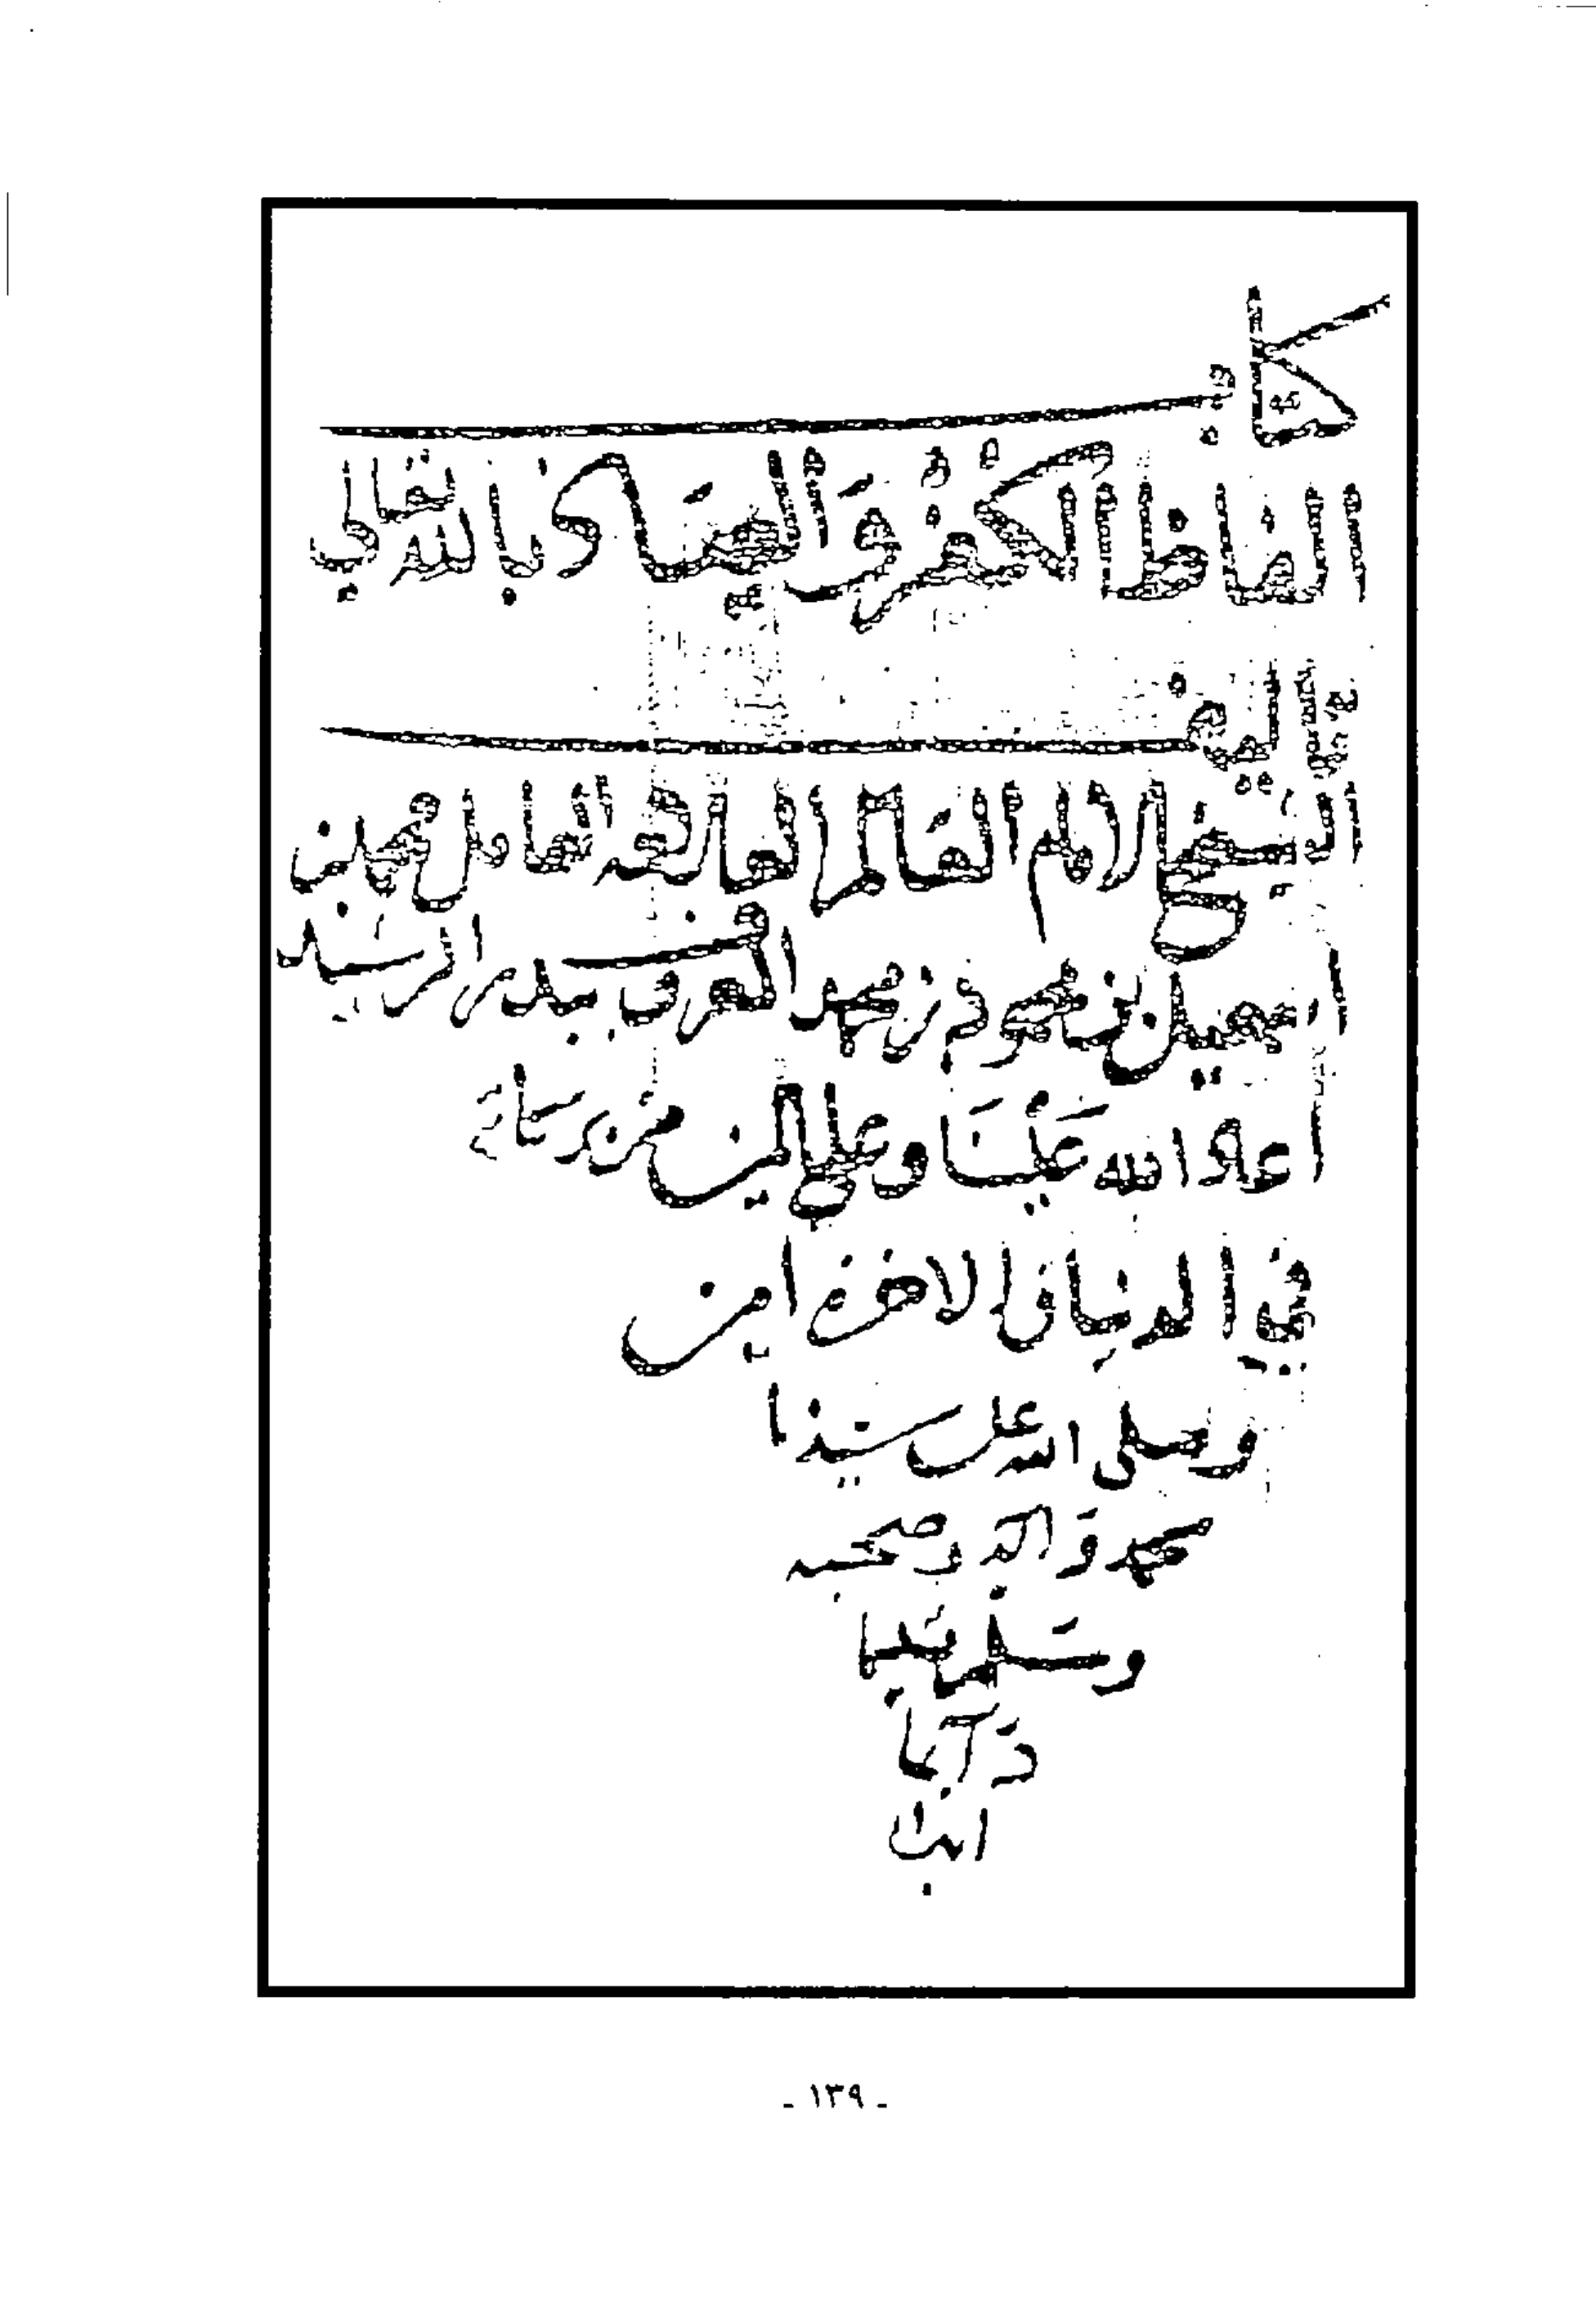 كتاب
الفاظ الكفر والعياذ بالله تعالى
تاليف
الشيخ الامام العالم العامل محمد بن
اسمعيل بن محمود بن محمد المعروف ببدر الرشيد
اعاد الله علينا وعلى المسلمين من بركاته
في الدنيا والاخرة امين
وصلى الله على سيدنا
محمد واله وصحبه
وسلم تسليما
دآئما
ابدا
- ١٣٩ -